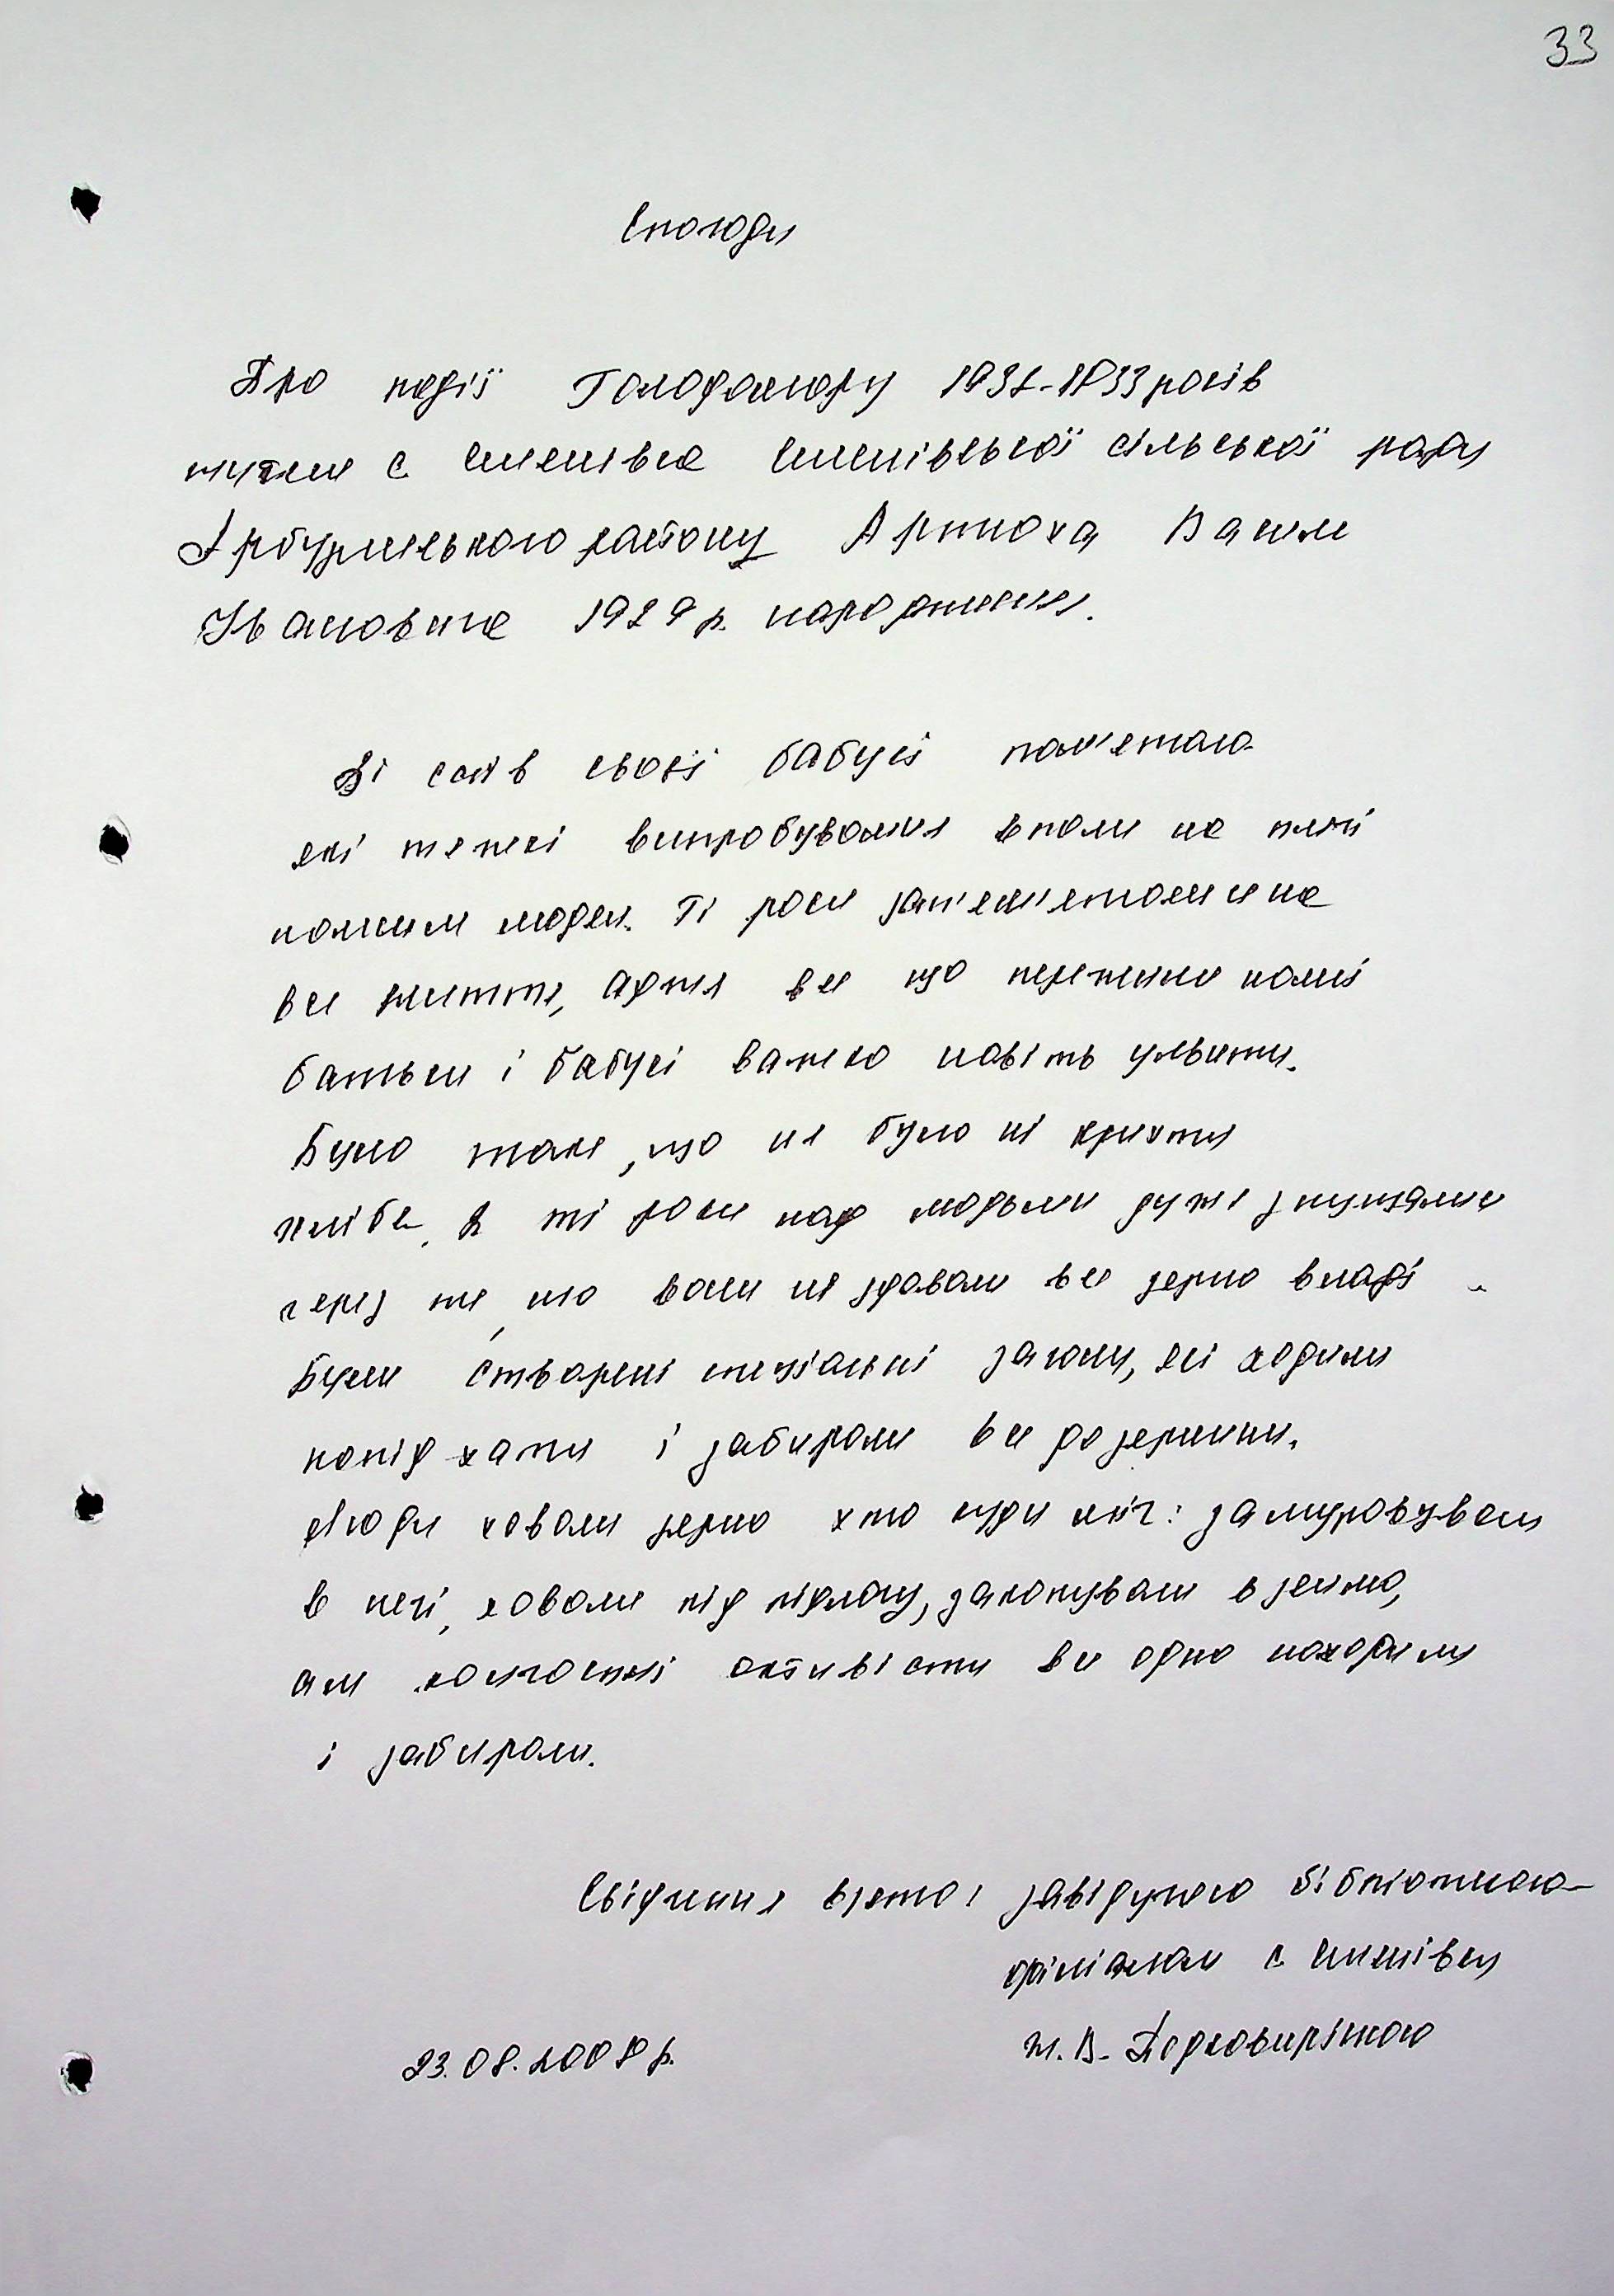 33
Спогади
Про події Голодомору 1932-1933 років
жителя с. Семенівка Семенівської сільської ради
Арбузинського району Артюха Васи
Івановича 1929 р. народження.
Зі слів своєї бабусі пам'ятаю
які тяжкі випробування впали на плечі
наших людей. Ті роки запам'яталися на
все життя, адже все що пережили наші
батьки і бабусі важко навіть уявити.
Було таке, що не було ні крихти
хліба. В ті роки над людьми дуже знущалися
через те, що вони не здавали все зерно владі.
Були створені спеціальні загони, які ходили
попід хати і забирали все до зернини.
Люди ховали зерно хто куди міг: замуровували
в печі, ховали під підлогу, закопували в землю,
але колгоспні активісти все одно находили
і забирали.
Свідчення взято: завідуючою бібліотекою-
філіалом с. Семенівка
23.08.2008 р.
Ж. В.